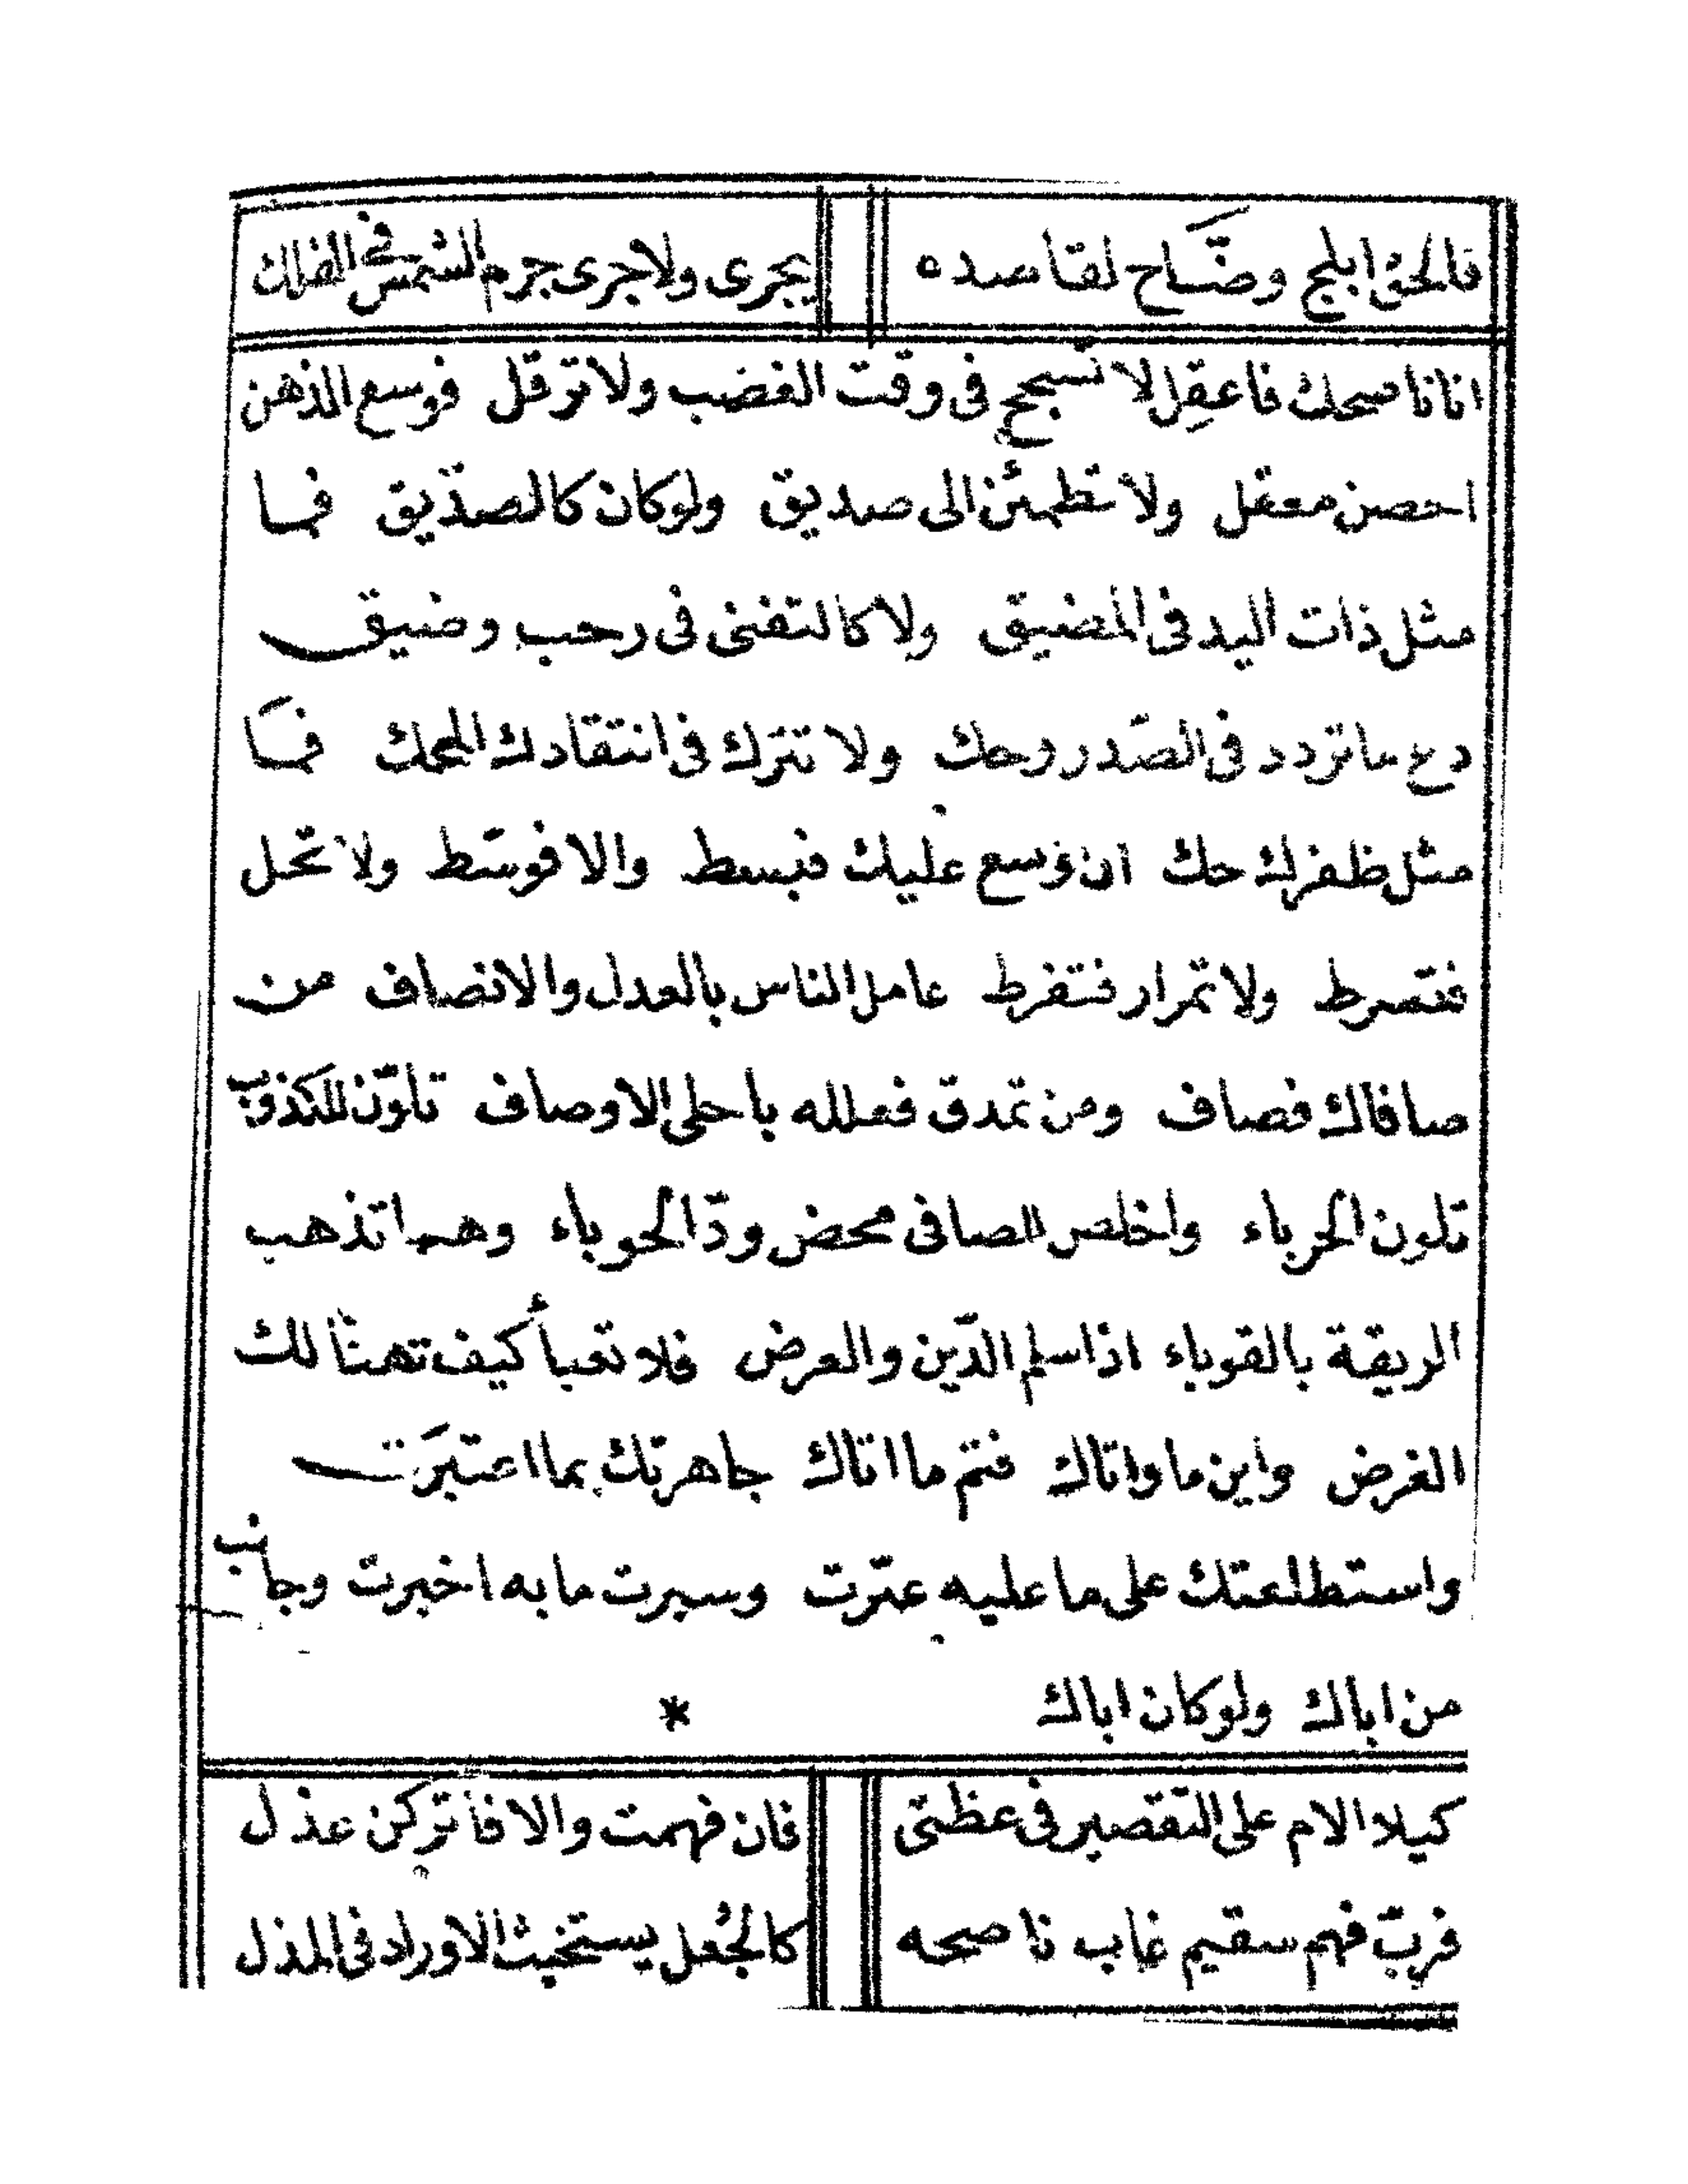 فالحق ابلج وضّاح لقاصده يجرى ولا جرى جرم الشمس في الفلك
انا ناصحك فاعقِل لا تسجح في وقت الغضب ولا ترقل فوسع الذهن
احصن معقل ولا تطمئن الى صديق ولو كان كالصدّيق فما
مثل ذات اليد في المضيق ولا كالتفنى في رحب وضيق
دع ما تردد في الصّدر وحك ولا تترك في انتقادك المحك فمَا
مثل ظفرك حك ان وسع عليك فبسط والا فوسّط ولا تحل
فتصرط ولا تمرار فتفرط عامل الناس بالعدل والانصاف من
صافاك فصاف ومن تمذق فعلله باحلى الاوصاف تلوّن للكذوب
تلون الحرباء واخلص للصافى محض ودّ الحوباء وهما تذهب
الريقة بالقوباء اذا سلم الدّين والعرض فلا تعبأ كيف تهنّأ لك
الغرض واين ما واتاك فتم ما اتاك جاهرتك بما اعتبَرت
واستطلعتك على ما عليه عثرت وسبرت ما به اخبرت وجانب
من اباك ولو كان اباك *
كيلا الام على التقصير في عظتى فان فهمت والا فاتركن عذل
فربّ فهم سقيم غاب ناصحه كالجُعل يستخبث الاوراد في المذل